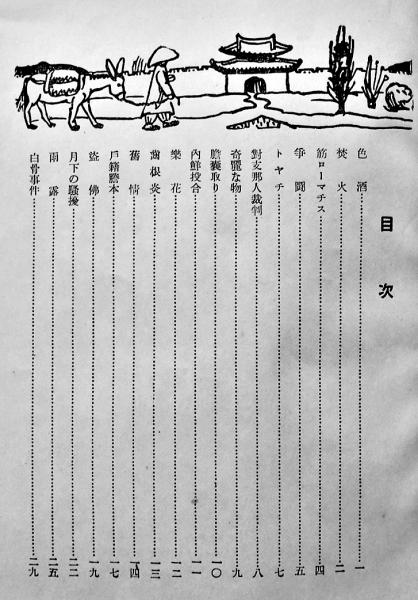 目次
色酒……一
焚火……二
筋ローマチス……四
爭鬪……五
トヤチ……七
對支那人裁判……八
奇麗な物……九
膽嚢取り……一〇
內鮮投合……一一
樂花……一二
齒根炎……一三
舊情……一四
戶籍謄本……一七
盜佛……一九
月下の騷擾……二二
雨露……二五
白骨事件……二九